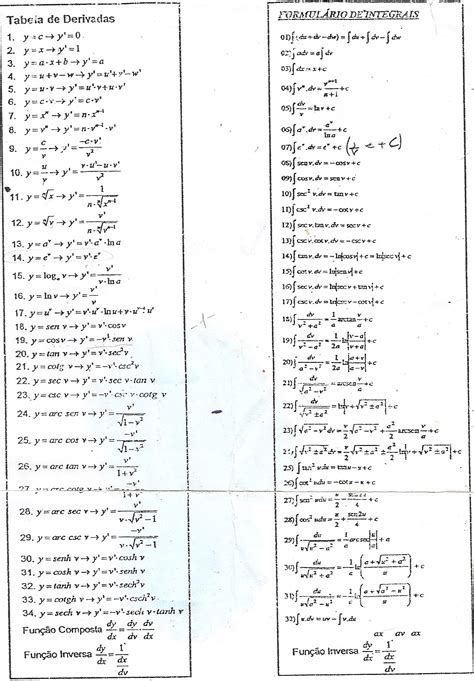 Tabela de Derivadas
1. y = c → y' = 0
2. y = x → y' = 1
3. y = a·x + b → y' = a
4. y = u + v − w → y' = u' + v' − w'
5. y = u·v → y' = u'·v + u·v'
6. y = c·v → y' = c·v'
7. y = xⁿ → y' = n·xⁿ⁻¹
8. y = vⁿ → y' = n·vⁿ⁻¹·v'
9. y = c/v → y' = −c·v'/v²
10. y = u/v → y' = v·u' − u·v'/v²
11. y = ⁿ√x → y' = 1/n·ⁿ√xⁿ⁻¹
12. y = ⁿ√v → y' = v'/n·ⁿ√vⁿ⁻¹
13. y = aᵛ → y' = v'·aᵛ·ln a
14. y = eᵛ → y' = v'·eᵛ
15. y = logₐ v → y' = v'/v·ln a
16. y = ln v → y' = v'/v
17. y = uᵛ → y' = v'·uᵛ·ln u + v·uᵛ⁻¹·u'
18. y = sen v → y' = v'·cos v
19. y = cos v → y' = −v'·sen v
20. y = tan v → y' = v'·sec² v
21. y = cotg v → y' = −v'·csc² v
22. y = sec v → y' = v'·sec v·tan v
23. y = csc v → y' = −v'·csc v·cotg v
24. y = arc sen v → y' = v'/√1−v²
25. y = arc cos v → y' = −v'/√1−v²
26. y = arc tan v → y' = v'/1+v²
27. y = arc cotg v → y' = −v'/1+v²
28. y = arc sec v → y' = v'/v·√v²−1
29. y = arc csc v → y' = −v'/v·√v²−1
30. y = senh v → y' = v'·cosh v
31. y = cosh v → y' = v'·senh v
32. y = tanh v → y' = v'·sech² v
33. y = cotgh v → y' = −v'·csch² v
34. y = sech v → y' = −v'·sech v·tanh v
Função Composta dy/dx = dy/dv · dv/dx
Função Inversa dy/dx = 1/dx/dv
FORMULÁRIO DE INTEGRAIS
01) ∫(du + dv − dw) = ∫du + ∫dv − ∫dw
02) ∫adv = a∫dv
03) ∫dx = x + c
04) ∫vⁿ.dv = vⁿ⁺¹/n+1 + c
05) ∫dv/v = ln v + c
06) ∫aᵛ.dv = aᵛ/ln a + c
07) ∫eᵛ.dv = eᵛ + c
08) ∫sen v.dv = −cos v + c
09) ∫cos v.dv = sen v + c
10) ∫sec² v.dv = tan v + c
11) ∫csc² v.dv = −cot v + c
12) ∫sec v.tan v.dv = sec v + c
13) ∫csc v.cot v.dv = −csc v + c
14) ∫tan v.dv = −ln|cos v| + c = ln|sec v| + c
15) ∫cot v.dv = ln|sen v| + c
16) ∫sec v.dv = ln|sec v + tan v| + c
17) ∫csc v.dv = ln|csc v − cot v| + c
18) ∫dv/v²+a² = 1/a arctan v/a + c
19) ∫dv/v²−a² = 1/2a ln|v−a/v+a| + c
20) ∫dv/a²−v² = 1/2a ln|a+v/a−v| + c
21) ∫dv/√a²−v² = arcsen v/a + c
22) ∫dv/√v²±a² = ln|v + √v²±a²| + c
23) ∫√a²−v² dv = v/2 √a²−v² + a²/2 arcsen v/a + c
24) ∫√v²±a² dv = v/2 √v²±a² ± a²/2 ln|v + √v²±a²| + c
25) ∫tan² u du = tan u − u + c
26) ∫cot² u du = −cot u − u + c
27) ∫sen² u du = u/2 − sen2u/4 + c
28) ∫cos² u du = u/2 + sen2u/4 + c
29) ∫du/u√u²−a² = 1/a arcsec|u/a| + c
30) ∫du/u√u²+a² = −1/a ln|a+√u²+a²/u| + c
31) ∫du/u√a²−u² = −1/a ln|a+√a²−u²/u| + c
32) ∫u.dv = uv − ∫v.du
dx dv dx
Função Inversa dy/dx = 1/dx/dv